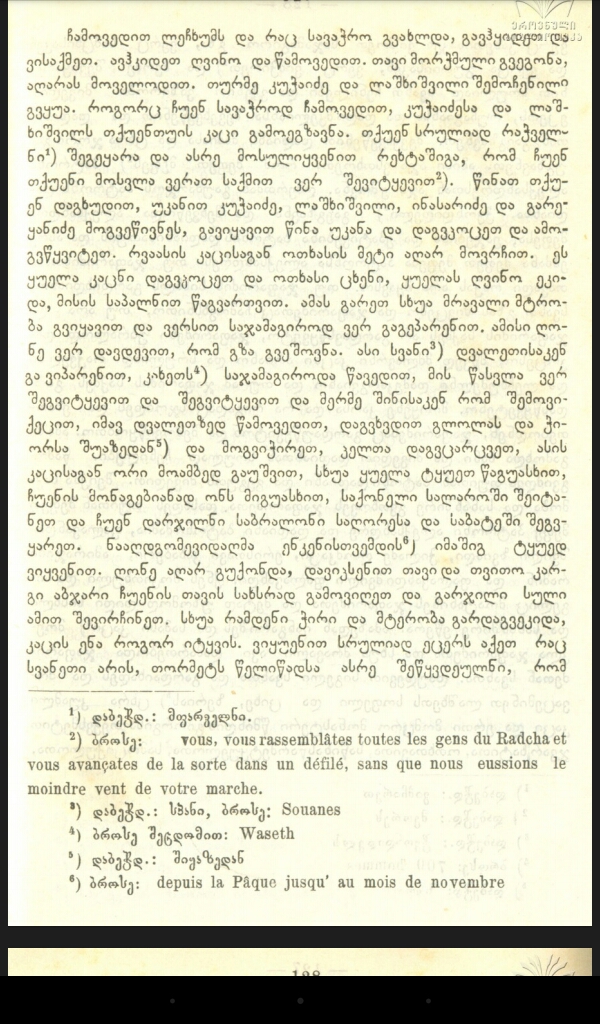 ეროვნული
ჩამოვედით ლეჩხუმს და რაც სავაჭრო გვახლდა, გავჰყიდეთ და
ვისაქმეთ. ავჰკიდეთ ღვინო და წამოვედით. თავი მორჭმული გვეგონა,
აღარას მოველოდით. თურმე კუჭაიძე და ლაშხიშვილი შემოჩენილი
გვყუა. როგორც ჩუენ სავაჭროდ ჩამოვედით, კუჭაიძესა და ლაშ-
ხიშვილს თქუენთვის კაცი გამოეგზავნა. თქუენ სრულიად რაჭველ-
ნი¹) შეგეყარა და ასრე მოსულიყვენით რეხტაშიგა, რომ ჩუენ
თქუენი მოსვლა ვერათ საქმით ვერ შევიტყევით²). წინათ თქუ-
ენ დაგხუდით, უკანით კუჭაიძე, ლაშხიშვილი, ინასარიძე და გარე-
ყანიძე მოგვეწივნეს, გავიყავით წინა უკანა და დაგვკოცეთ და ამო-
გვწყვიტეთ. რვაასის კაცისაგან ოთხასის მეტი აღარ მოვრჩით. ეს
ყუელა კაცნი დაგვკოცეთ და ოთხასი ცხენი, ყუელას ღვინო ეკი-
და, მისის საპალნით წაგვართვით. ამას გარეთ სხუა მრავალი მტრო-
ბა გვიყავით და ვერსით საჯამაგიროდ ვერ გაგეპარენით. ამისი ღო-
ნე ვერ დავდევით, რომ გზა გვეშოვნა. ასი სვანი³) დვალეთისაკენ
გავიპარენით, კახეთს⁴) საჯამაგიროდა წავედით, მის წასვლა ვერ
შეგვიტყევით და შეგვიტყევით და მერმე შინისაკენ რომ შემოვი-
ქეცით, იმავ დვალეთზედ წამოვედით, დაგვხვდით გლოლას და ჭი-
ორსა შუაზედან⁵) და მოგვიჭირეთ, კელთა დაგვცარცვეთ, ასის
კაცისაგან ორი მოამბედ გაუშვით, სხუა ყუელა ტყუეთ წაგუასხით,
ჩუენის მონაგებიანად ონს მიგუასხით, საქონელი სალაროში შეიტა-
ნეთ და ჩუენ დარჯილნი საბრალონი საღორესა და საბატეში შეგვ-
ყარეთ. ნააღდგომევიდაღმა ენკენისთვემდის⁶) იმაშიგ ტყუედ
ვიყვენით. ღონე აღარ გუქონდა, დავიკსენით თავი და თვითო კარ-
გი აბჯარი ჩუენის თავის სახსრად გამოვიღეთ და გარჯილი სული
ამით შევირჩინეთ. სხუა რამდენი ჭირი და მტერობა გარდაგვეკიდა,
კაცის ენა როგორ იტყვის. ვიყუენით სრულიად ეცერს აქეთ რაც
სვანეთი არის, თორმეტს წელიწადსა ასრე შეწყვდეულნი, რომ
¹) დაბეჭდ.: მფარველნი.
²) ბროსე: vous, vous rassemblâtes toutes les gens du Radcha et
vous avançates de la sorte dans un défilé, sans que nous eussions le
moindre vent de votre marche.
³) დაბეჭდ.: სპანი, ბროსე: Souanes
⁴) ბროსე შეცდომით: Waseth
⁵) დაბეჭდ.: შიყაზედან
⁶) ბროსე: depuis la Pâque jusqu' au mois de novembre